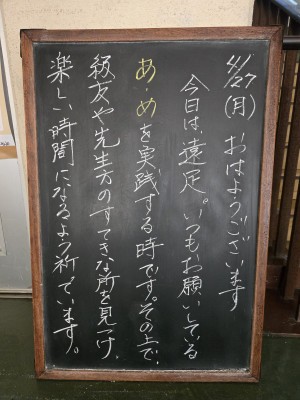 4/27(月) おはようございます
今日は、遠足。いつもお願いしている
あ・めを実践する時です。その上で、
級友や先生方のすてきな所を見つけ、
楽しい時間になるよう祈っています。